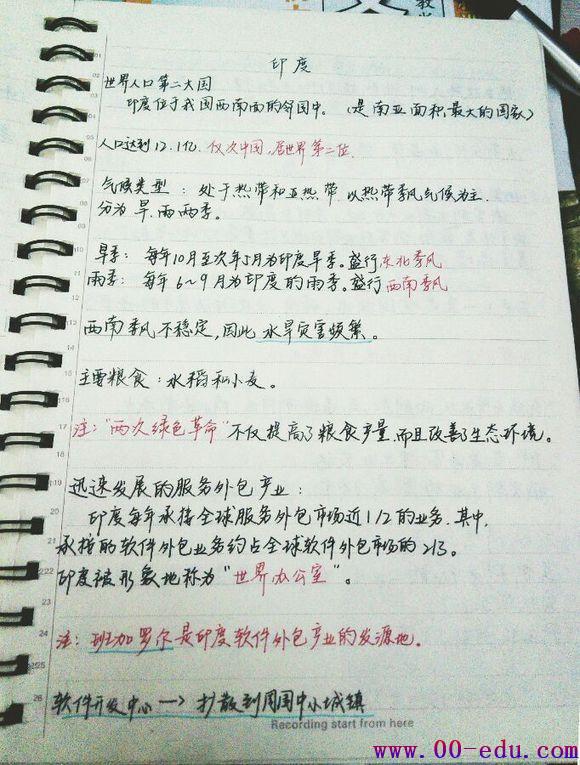 印度
世界人口第二大国
印度位于我国西南面的邻国中。（是南亚面积最大的国家）
人口达到12.1亿.仅次中国,居世界第二位.
气候类型：处于热带和亚热带.以热带季风气候为主.
分为旱.雨两季。
旱季：每年10月至次年5月为印度旱季。盛行东北季风
雨季：每年6~9月为印度的雨季。盛行西南季风
西南季风不稳定,因此水旱灾害频繁。
主要粮食：水稻和小麦。
注:"两次绿色革命"不仅提高了粮食产量而且改善了生态环境。
迅速发展的服务外包产业：
印度每年承接全球服务外包市场近1/2的业务.其中,
承接的软件外包业务约占全球软件外包市场的2/3。
印度被形象地称为"世界办公室"。
注：班加罗尔是印度软件外包产业的发源地。
软件开发中心—>扩散到周围中小城镇
Recording start from here
www.00-edu.com